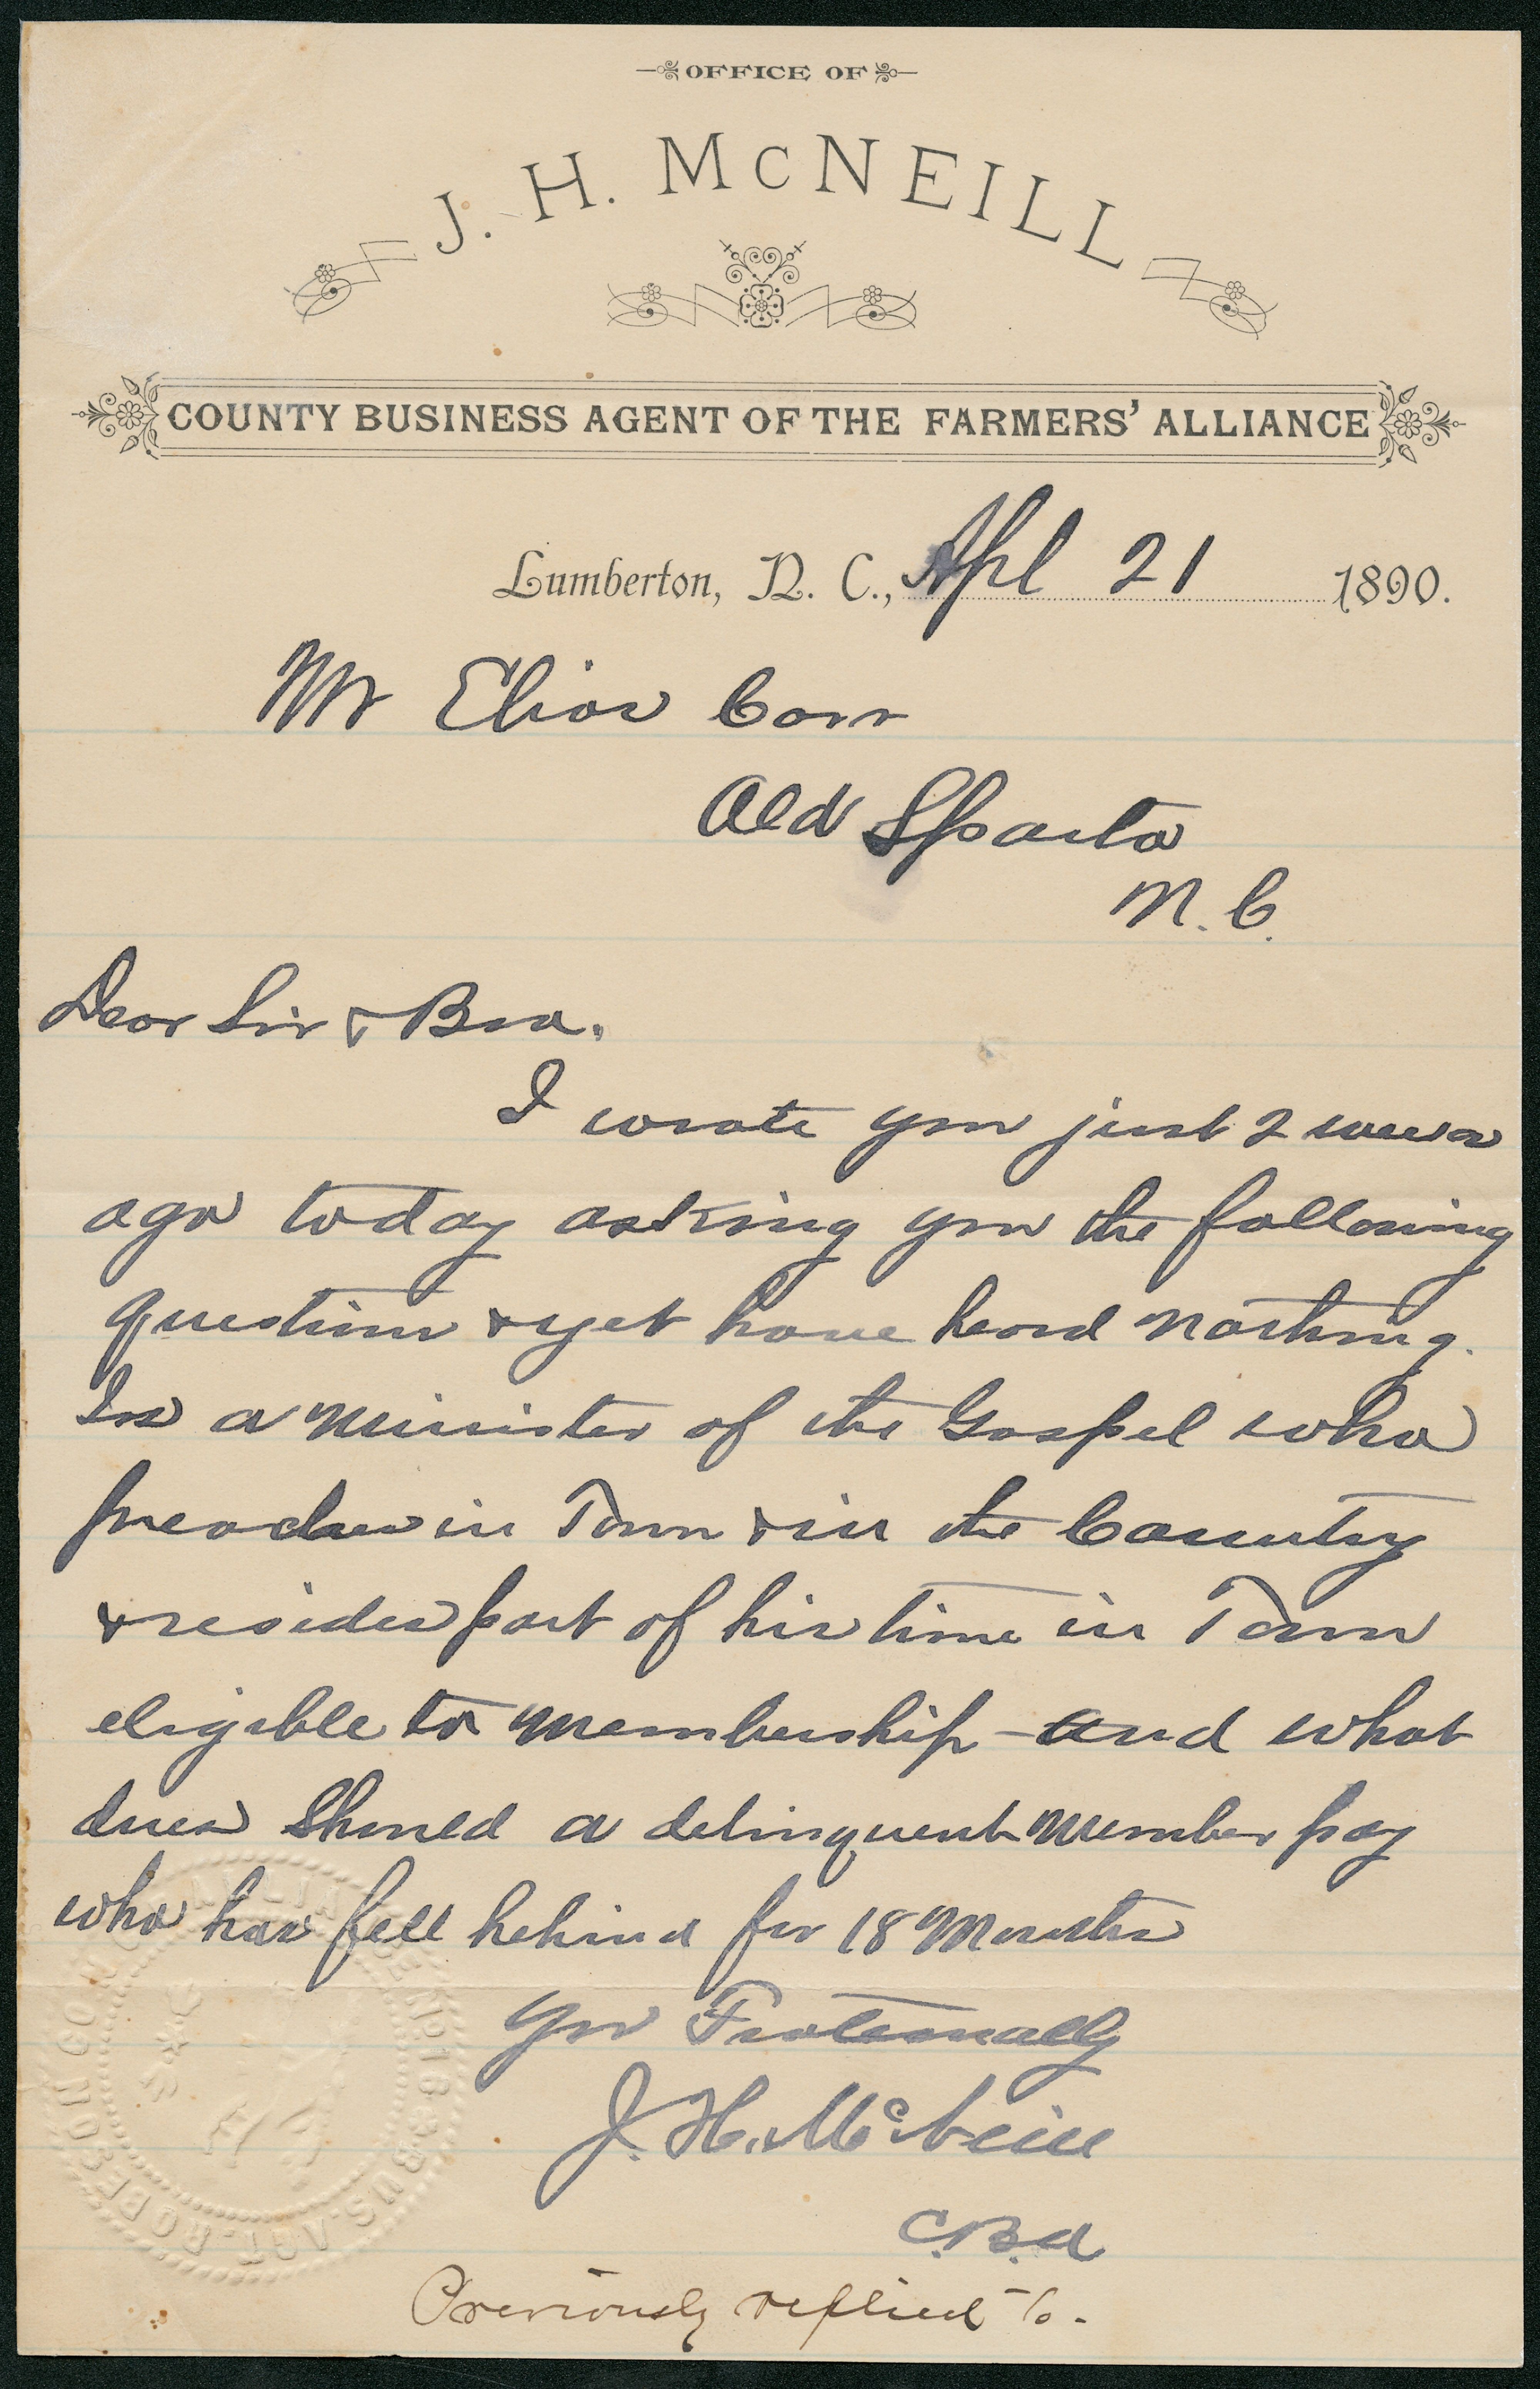 OFFICE OF
J. H. McNEILL
COUNTY BUSINESS AGENT OF THE FARMERS' ALLIANCE
Lumberton, N. C., Apl 21 1890.
Mr Elias Carr
Old Sparta
N. C.
Dear Sir & Bro.
I wrote you just 2 weeks
ago today asking you the following
questions & yet have heard nothing.
Is a minister of the Gospel who
preaches in Town & in the Country
& resides part of his time in Town
eligible to membership - and what
dues should a delinquent member pay
who has fell behind for 18 months
Yrs Fraternally
J. H. McNeill
C.B.A
Previously replied to.
BUS. AGT. ROBESON CO